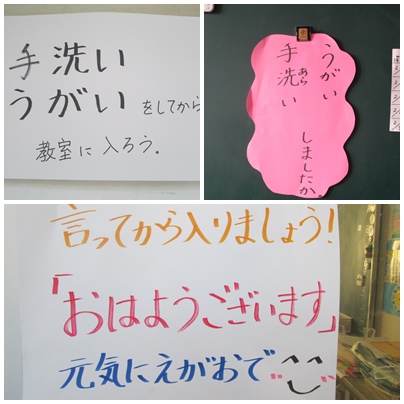 手洗い
うがいをしてから
教室に入ろう。
うがい
手洗い
あら
しましたか。
言ってから入りましょう!
「おはようございます」
元気にえがおで